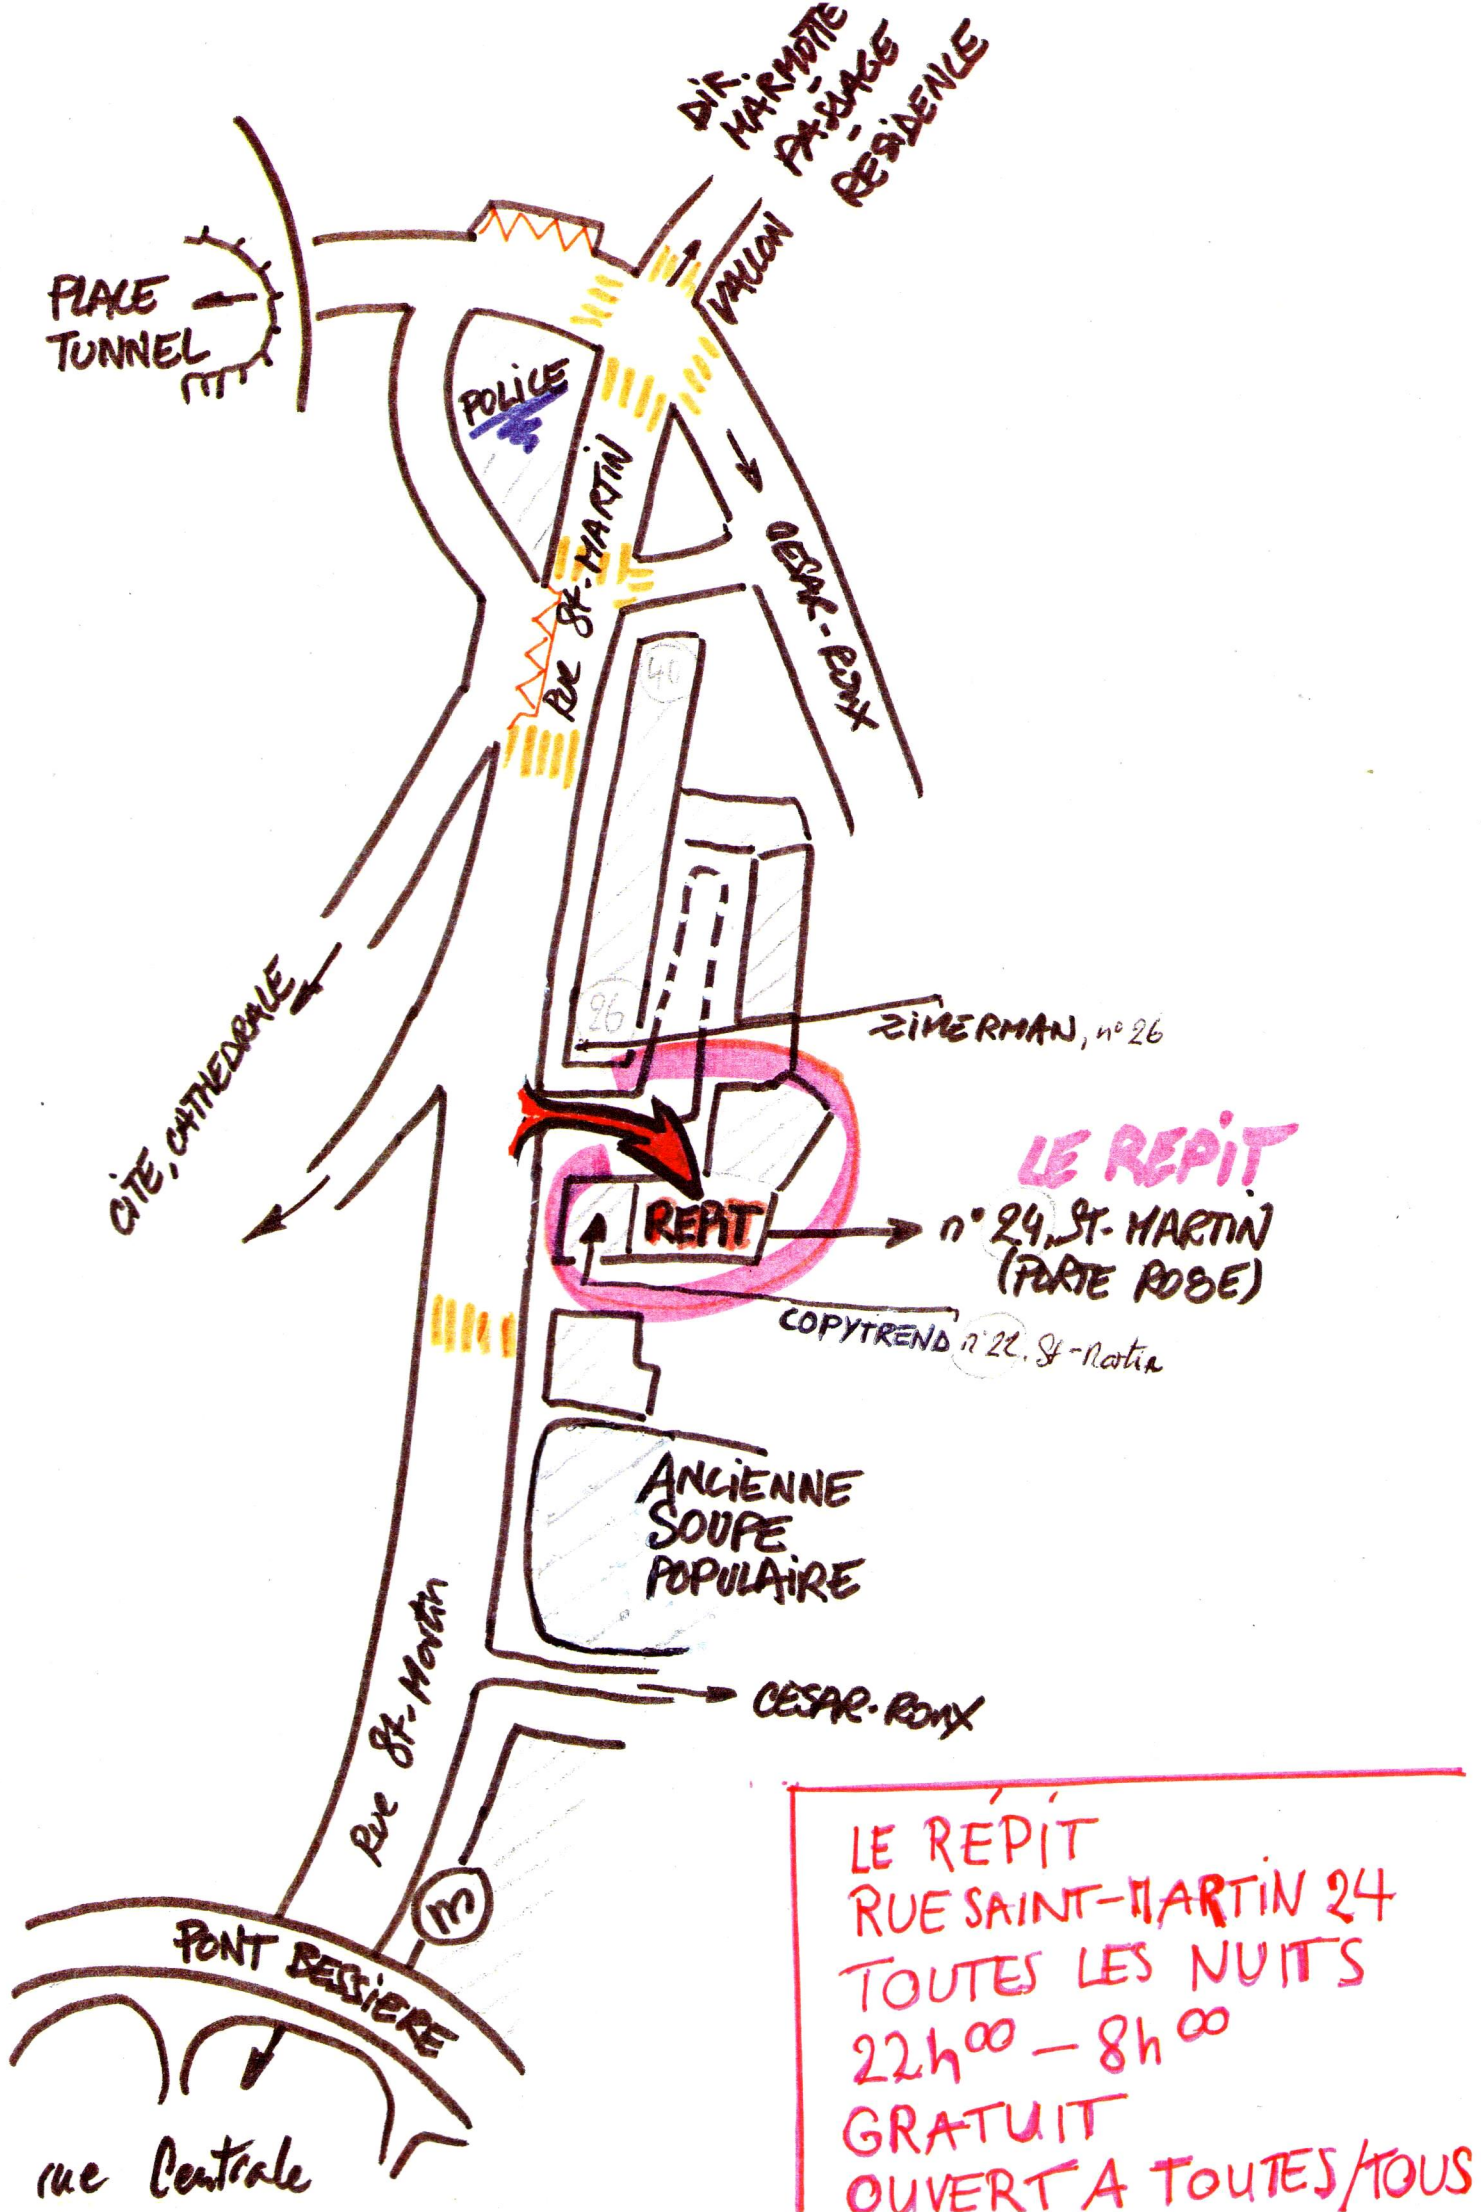 DIR.
MARMOTTE
PASSAGE
RESIDENCE
VALLON
PLACE
TUNNEL
POLICE
RUE St-MARTIN
CESAR-ROUX
40
CITE, CATHEDRALE
26
ZIMERMAN, n° 26
LE REPIT
REPIT
n° 24, ST-MARTIN
(PORTE ROSE)
COPYTREND n° 22, St-Martin
ANCIENNE
SOUPE
POPULAIRE
CESAR-ROUX
Rue St-Martin
m
PONT BESSIERE
rue Centrale
LE RÉPIT
RUE SAINT-MARTIN 24
TOUTES LES NUITS
22h00 - 8h00
GRATUIT
OUVERT A TOUTES/TOUS